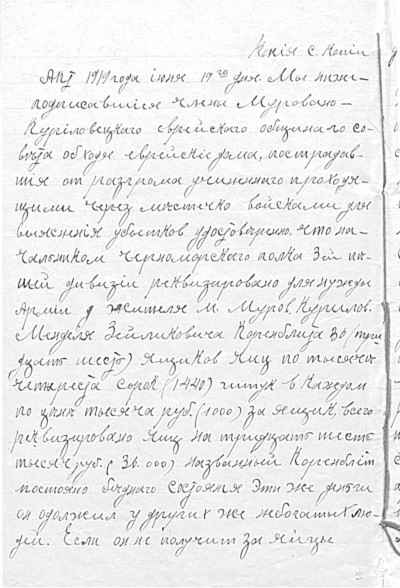 Копія с копіи
Актъ 1919 года іюня 19го дня. Мы ниже-
подписавшіеся члены Муровано-
Куриловецкаго еврейскаго общиннаго со-
вѣта обходя еврейскіе дома, пострадав-
шія от разгрома учиненнаго проходя-
щими через мѣстечко войсками для
выясненія убытков удостовѣрено, что на-
чальником черноморскаго полка 3ей пѣ-
шей дивизіи реквизировано для нужды
Арміи у жителя М. Муров. Курилов.
Менделя Зейликовича Коренблита 36 (трид
цать шесть) ящиков яиц по тысячѣ
четыреста сорок (1440) штук в каждом
по цѣнѣ тысяча руб. (1000) за ящик, всего
реквизировано яиц на тридцать шесть
тысяч руб. (36.000) названный Коренблит
постояно бѣднаго состоянія эти же деньги
он одолжил у других же небогатых лю-
дей. Если он не получит за яйца